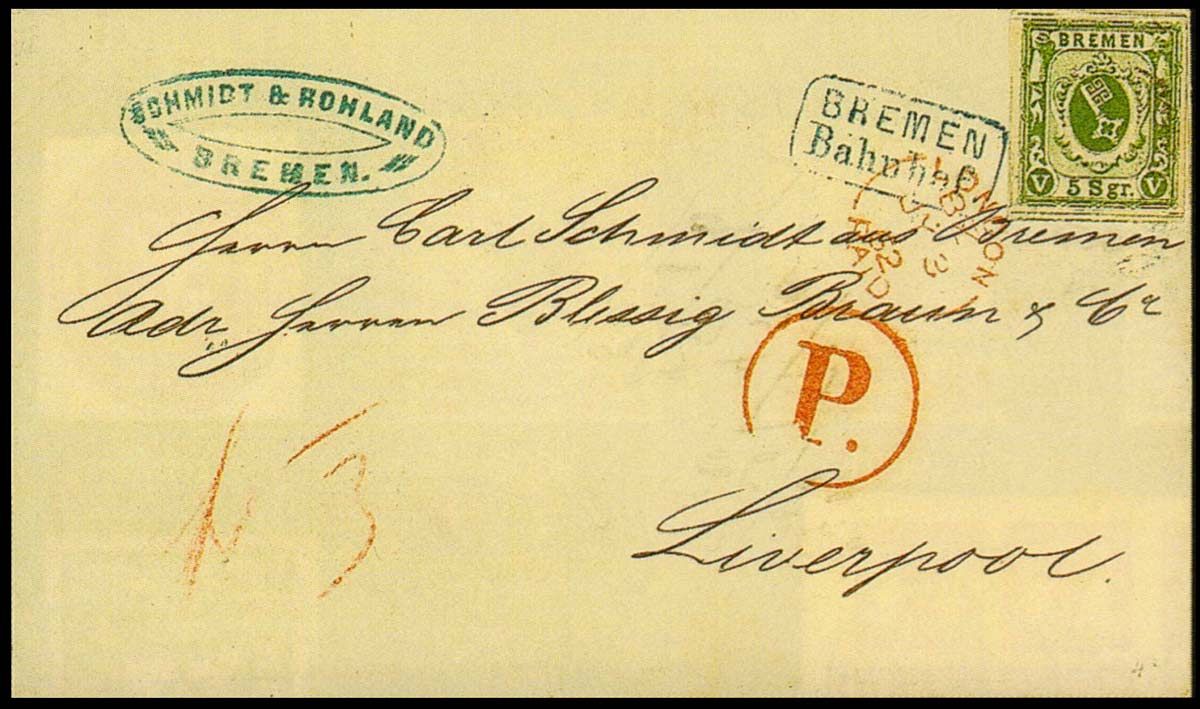 SCHMIDT & ROHLAND
BREMEN.
BREMEN
Bahnhof
BREMEN
V 5 Sgr. V
LONDON
3
62
PAID
Herrn Carl Schmidt aus Bremen
Adr. Herren Blessig Braun & Co
P.
Liverpool.
3